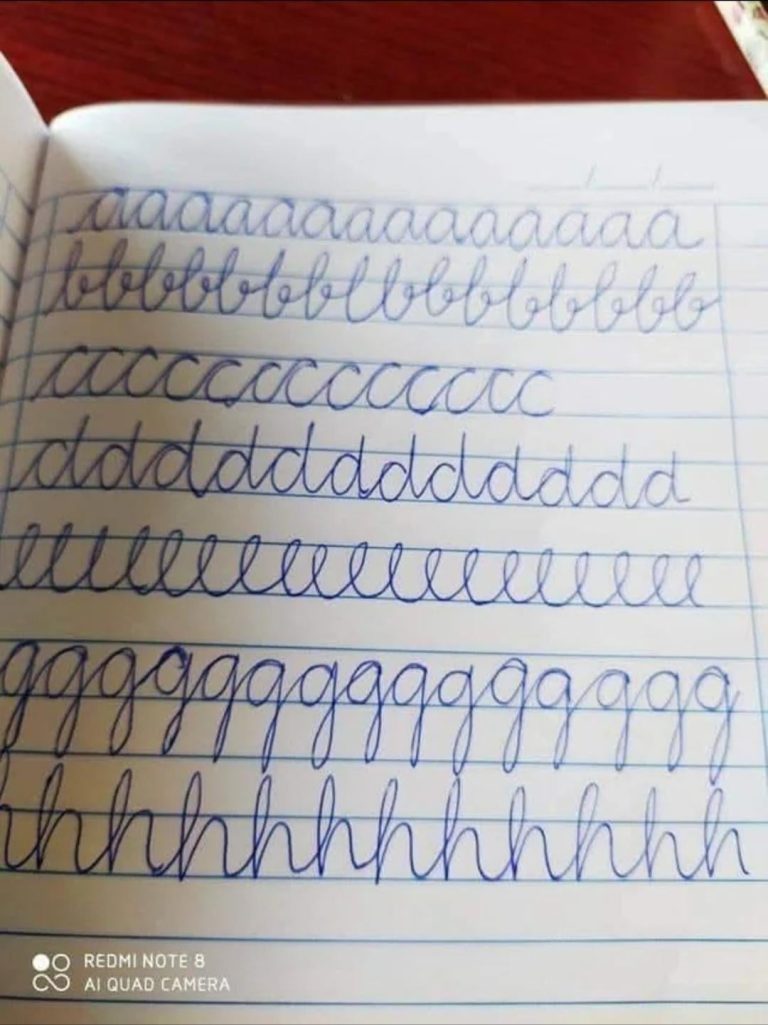 aaaaaaaaaaaaaaa
bbbbbbblbbbbbbbb
cccccccccccccc
dddddddddddddd
eeeeeeeeeeeeeeeeee
ggggggggggggggg
hhhhhhhhhhhh
REDMI NOTE 8
AI QUAD CAMERA